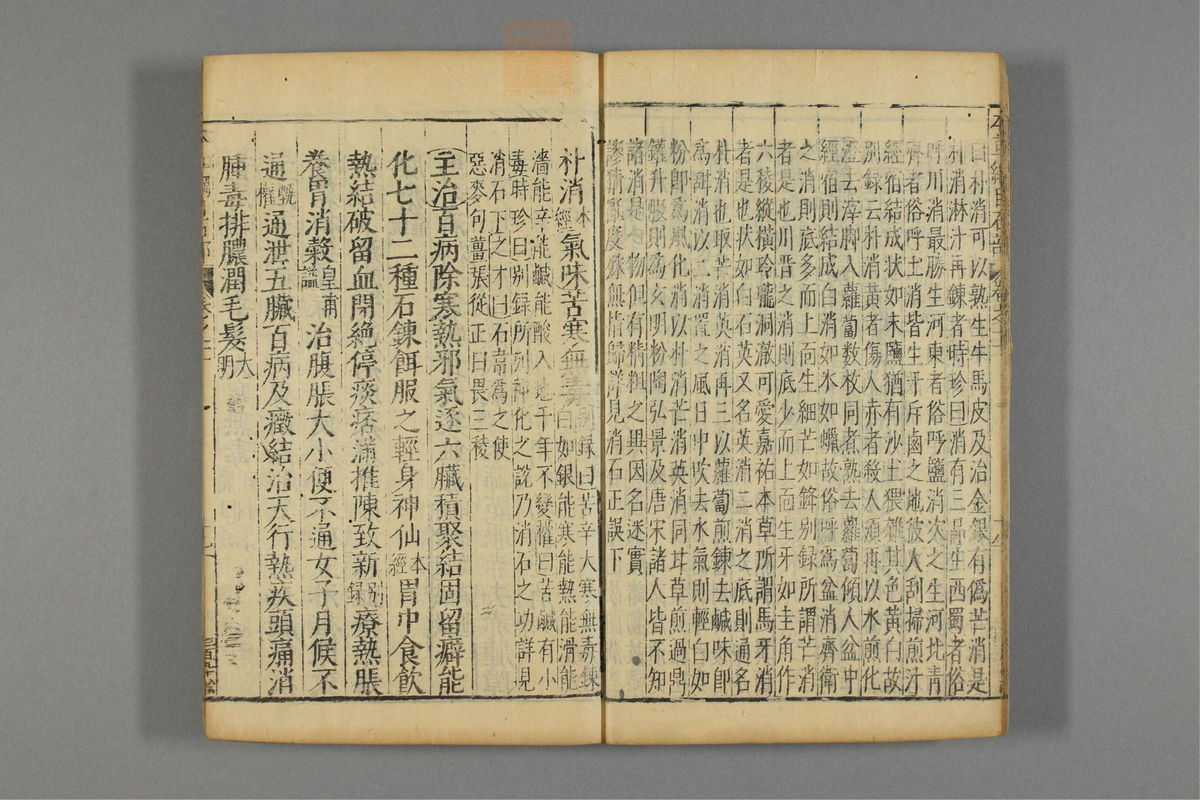 曰朴消可以熟生牛馬皮及治金銀有僞芒消是
朴消淋汁再鍊者時珍曰消有三品生西蜀者俗
呼川消最勝生河東者俗呼鹽消次之生河北青
齊者俗呼土消皆生于斥鹵之地彼人刮掃煎汁
經宿結成狀如末鹽猶有沙土猥雜其色黃白故
別録云朴消黃者傷人赤者殺人須再以水煎化
澄去滓脚入蘿蔔数枚同煮熟去蘿蔔傾入盆中
經宿則結成白消如氷如蠟故俗呼爲盆消齊衛
之消則底多而上面生細芒如鋒別録所謂芒消
者是也川晋之消則底少而上面生牙如圭角作
六稜縱橫玲瓏洞澈可愛嘉祐本草所謂馬牙消
者是也狀如白石英又名英消二消之底則通名
朴消也取芒消英消再三以蘿蔔煎鍊去鹹味即
爲甜消以二消置之風日中吹去水氣則輕白如
粉即爲風化消以朴消芒消英消同甘草煎過鼎
鑵升煅則爲玄明粉陶弘景及唐宋諸人皆不知
諸消是一物但有精粗之異因名迷實
謬猜亂度殊無指歸詳見消石正誤下
朴消本經氣味苦寒無毒別録曰苦辛大寒無毒鍊
白如銀能寒能熱能滑能
濇能辛能鹹能酸入地千年不變權曰苦鹹有小
毒時珍曰別録所列神化之說乃消石之功詳見
消石下之才曰石韋爲之使
惡麥句薑張從正曰畏三稜
主治百病除寒熱邪氣逐六臟積聚結固留癖能
化七十二種石鍊餌服之輕身神仙本經胃中食飲
熱結破留血閉絶停痰痞滿推陳致新別録療熱脹
養胃消穀皇甫謐治腹脹大小便不通女子月候不
通甄權通泄五臟百病及癥結治天行熱疾頭痛消
腫毒排膿潤毛髮大明